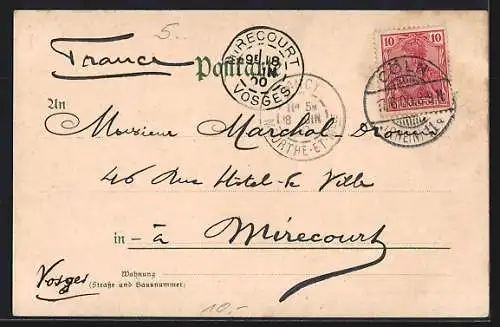 5.
France
Postkarte
MIRECOURT
18
JUIN
00
VOSGES
NANCY
18 JUIN
MEURTHE-ET-
10 10
CÖLN
(RHEIN)
An
Monsieur Marchal-Drouot
46 Rue Hôtel-de Ville
in - à Mirecourt
Vosges
Wohnung
(Straße und Hausnummer)
10.-